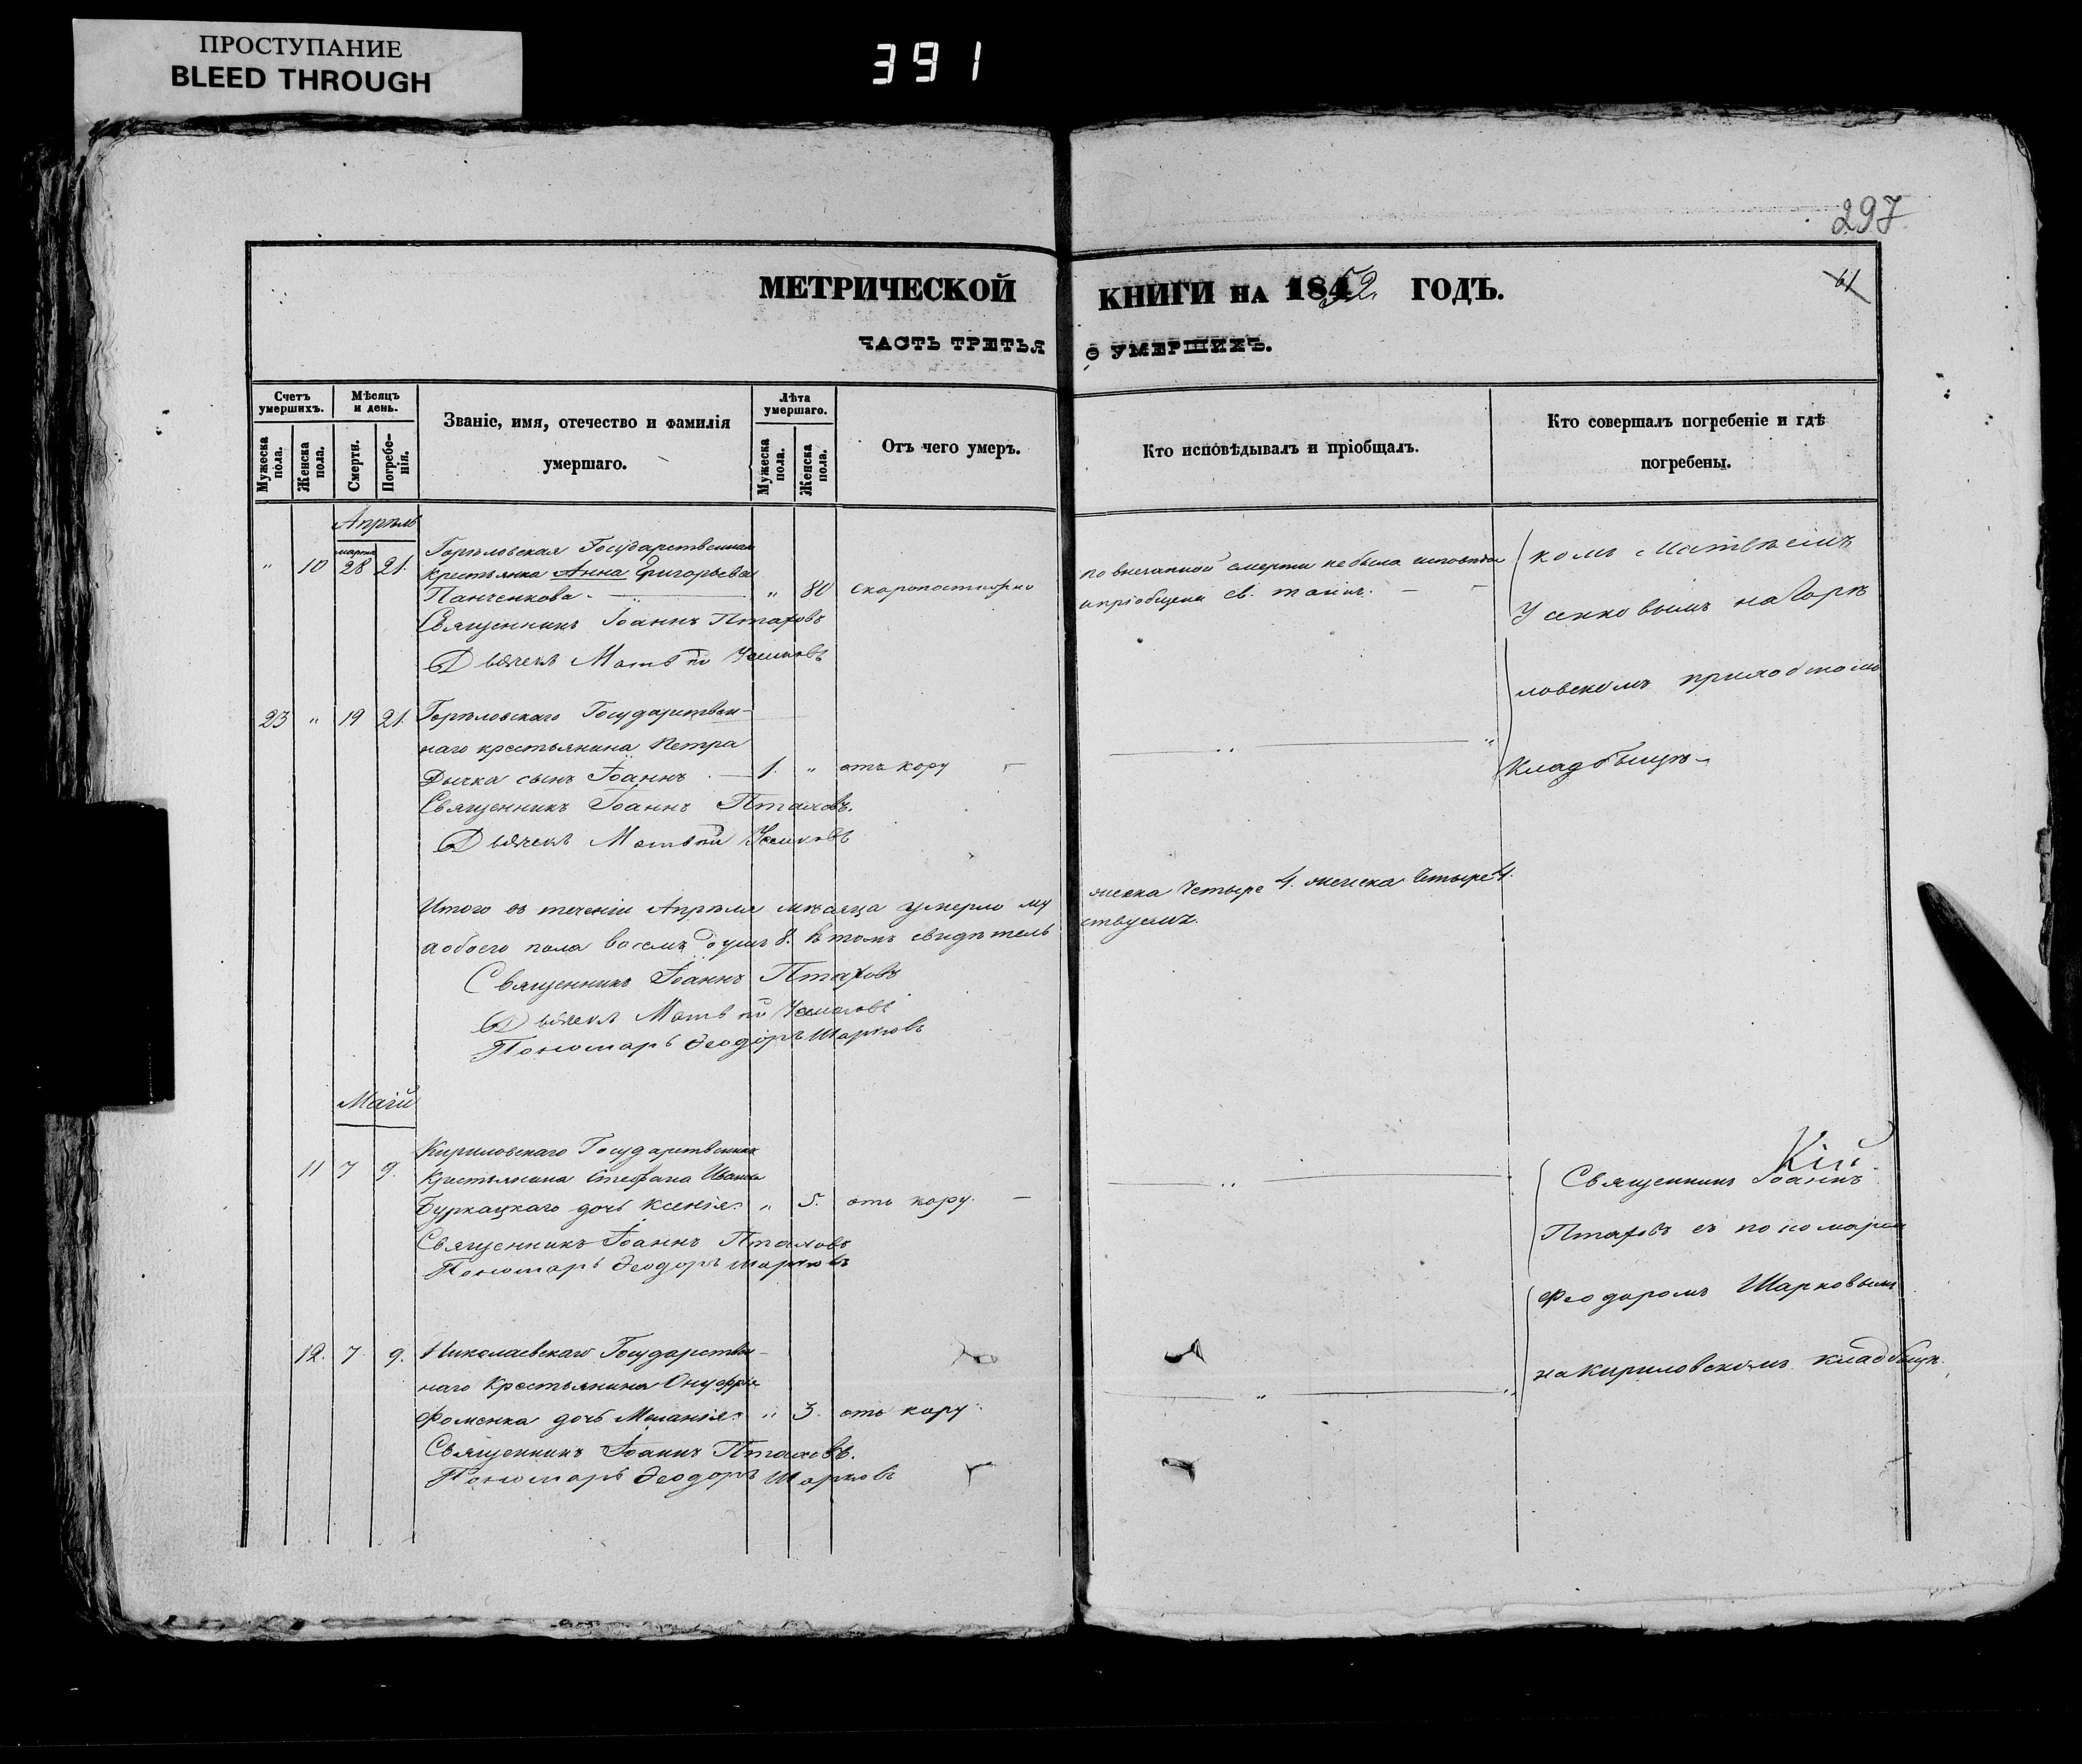 ПРОСТУПАНИЕ
BLEED THROUGH
391
297
61
МЕТРИЧЕСКОЙ КНИГИ НА 1852 ГОДЪ.
ЧАСТЬ ТРЕТЬЯ О УМЕРШИХЪ.
Счетъ умершихъ.
Мужеска пола.
Женска пола.
Мѣсяцъ и день.
Смерти.
Погребенія.
Званіе, имя, отечество и фамилія
умершаго.
Лѣта умершаго.
Мужеска пола.
Женска пола.
Отъ чего умеръ.
Кто исповѣдывалъ и пріобщалъ.
Кто совершалъ погребеніе и гдѣ
погребены.
Апрѣль
марта
" 10 28 21.
Горѣловская Государственная
крестьянка Анна Григорьева
Панченкова " 80 Скоропостижно
по внезапной смерти не была исповѣдана
и пріобщена св. таинъ.
Священникъ Іоаннъ Птаховъ
Дьячекъ Матвѣй Усиковъ
комъ Матвѣемъ
Усиковымъ на Горѣ
ловскомъ приходскомъ
кладбищѣ
23 " 19 21. Горѣловскаго Государствен-
наго крестьянина Петра
Дычка сынъ Іоаннъ 1. " отъ кору
Священникъ Іоаннъ Птаховъ.
Дьячекъ Матвѣй Усиковъ
Итого въ теченіи Апрѣля мѣсяца умерло му
жеска четыре 4. женска четыре 4.
а обоего пола восемь душъ 8. в томъ свидѣтель
ствуемъ.
Священникъ Іоаннъ Птаховъ
Дьячекъ Матвѣй Усиковъ
Пономарь Феодоръ Шарковъ
Маій
11 7 9. Кириловскаго Государственнаго
Крестьянина Стефана Иванова
Буркацкаго дочь Ксенія " 5. отъ кору.
Священникъ Іоаннъ Птаховъ
Пономарь Феодоръ Шарковъ
Кій
Священникъ Іоаннъ
Птаховъ съ пономаремъ
Феодоромъ Шарковымъ
на Кириловскомъ кладбищѣ.
12. 7 9. Николаевскаго Государствен-
наго Крестьянина Онуфрія
Фоменка дочь Меланія " 3. отъ кору.
Священникъ Іоаннъ Птаховъ.
Пономарь Феодоръ Шарковъ